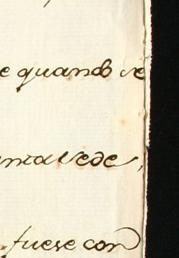 e quando se
untavede,
fuese con